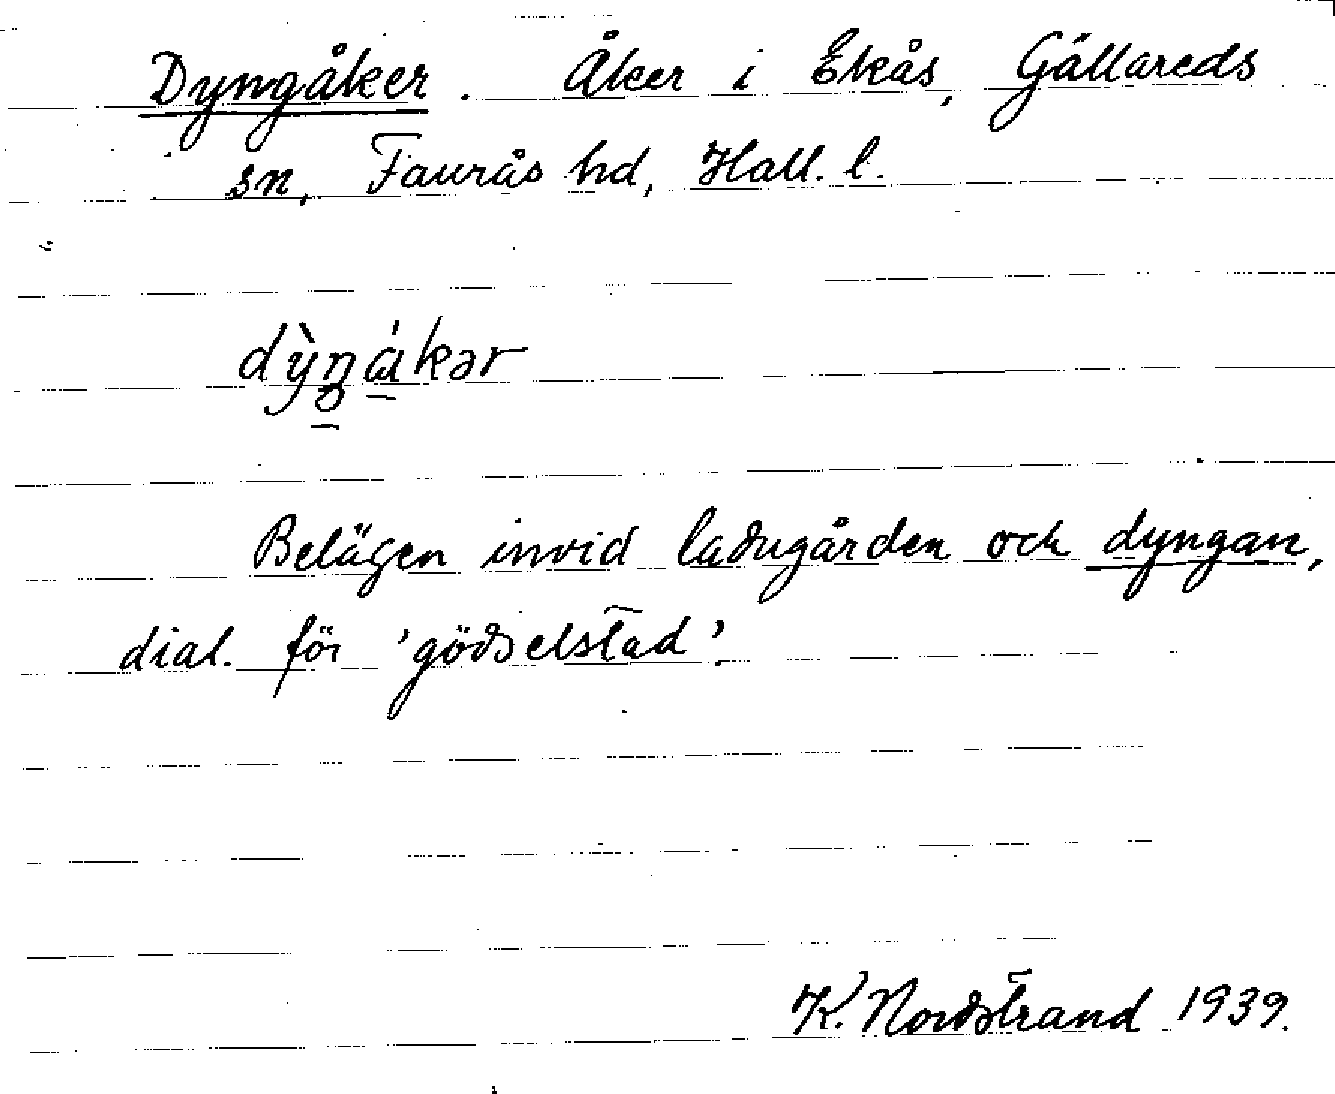 Dyngåker. Åker i Ekås, Gällareds
sn, Faurås hd, Hall. l.
dỳŋákər
Belägen invid ladugården och dyngan,
dial. för 'gödselstad'.
K. Nordstrand 1939.